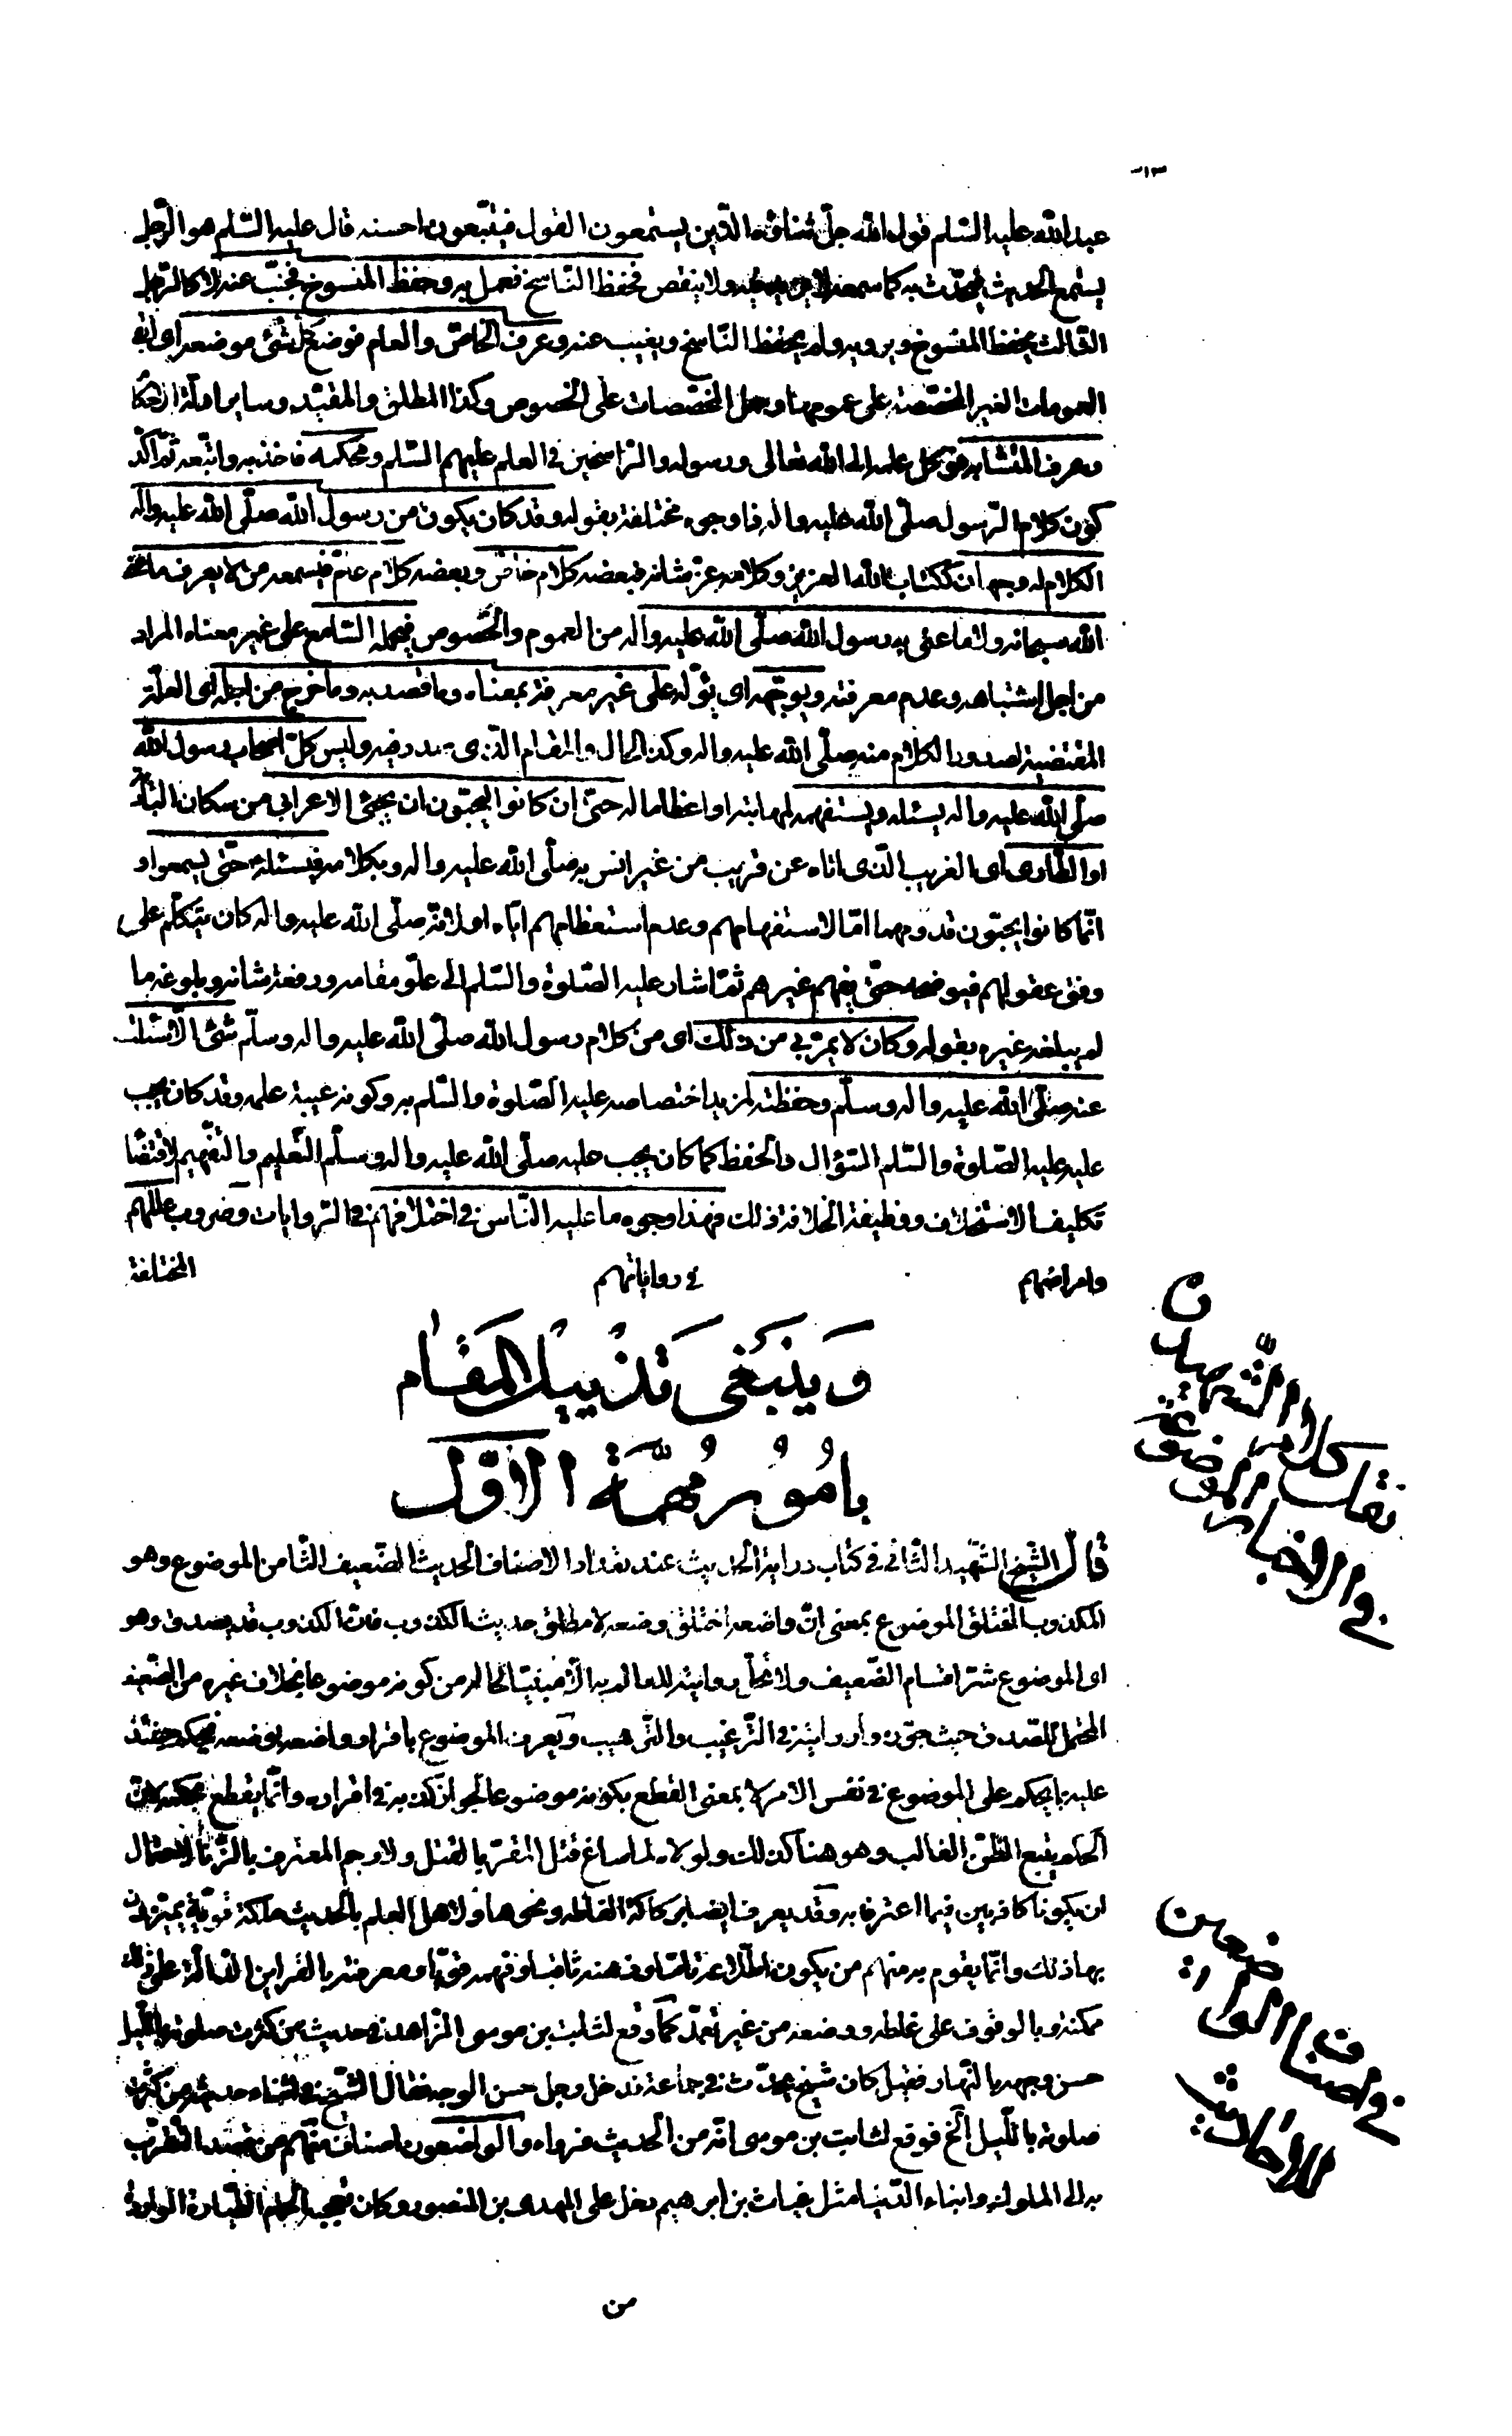 ١٣
عبد الله عليه السّلم قول الله جلّ ثناؤه الّذين يستمعون القول فيتّبعون احسنه قال عليه السّلم هو الرّجل
يستمع الحديث فيحدّث به كما سمعه لا يزيد فيه ولا ينقص فحفظ النّاسخ فعمل به وحفظ المنسوخ فجنّب عنه لا كالرّجل
الثّالث يحفظ المنسوخ ويرويه ولم يحفظ النّاسخ ويغيب عنه وعرف الخاصّ والعام فوضع كلّ شئ موضعه اى ابقى
العمومات الغير المخصّصة على عمومها وحمل المخصّصات على الخصوص وكذا المطلق والمقيّد وساير ادلّة الاحكا
وعرف المتشابه فوكل علمه الى الله تعالى ورسوله والرّاسخين فى العلم عليهم السّلم ومحكمه فاخذ به واتّبعه ثمّ اكّد
كون كلام الرّسول صلّى الله عليه واله ذا وجوه مختلفة بقوله وقد كان يكون من رسول الله صلّى الله عليه واله
الكلام له وجهان ككتاب الله العزيز وكلامه عزّ شانه فبعضه كلام خاصّ وبعضه كلام عامّ فيسمعه من لا يعرف ما عنى
الله سبحانه ولا ما عنى به رسول الله صلّى الله عليه واله من العموم والخصوص فيحمله السّامع على غير معناه المراد
من اجل اشتباهه وعدم معرفته ويوجّهه اى يؤوّله على غير معرفة بمعناه وما قصد به وما خرج من اجله اى العلّة
المقتضية لصدور الكلام منه صلّى الله عليه واله وكذا الحال والمقام الّذى صدر فيه وليس كلّ اصحاب رسول الله
صلّى الله عليه واله يسئله ويستفهمه لمهابته او اعظاما له حتّى ان كانوا ليحبّون ان يجئ الاعرابى من سكان البادية
او الطّارى اى الغريب الّذى اتاه عن قريب من غير انس به صلّى الله عليه واله وبكلامه فيسئله حتّى يسمعوا و
انّما كانوا يحبّون قدومهما امّا لاستفهامهم وعدم استعظامهم ايّاه او لانّه صلّى الله عليه واله كان يتكلّم على
وفق عقولهم فيوضحه حتّى يفهم غيرهم ثمّ اشار عليه الصّلوة والسّلم الى علوّ مقامه ورفعة شانه وبلوغه ما
لم يبلغه غيره بقوله وكان لا يمرّ بى من ذلك اى من كلام رسول الله صلّى الله عليه واله وسلّم شئ الّا سئلت
عنه صلّى الله عليه واله وسلّم وحفظته لمزيد اختصاصه عليه الصّلوة والسّلم به وكونه عيبة علمه وقد كان يجب
عليه عليه الصّلوة والسّلم السّؤال والحفظ كما كان يجب عليه صلّى الله عليه واله وسلّم التّعليم والتّفهيم لاقتضا
تكليف الاستخلاف ووظيفة الخلافة ذلك فهذا وجوه ما عليه النّاس فى اختلافهم فى الرّوايات وضروب عللهم
وامراضهم فى رواياتهم المختلفة
وَيَنبَغى تَذييلُ المَقام
باُمُورٍ مُهمَّة الاوّل
نقل كلام الشّهيد الثّانى
فى الاخبار الموضوعة
قال الشّيخ الشّهيد الثّانى فى كتاب دراية الحديث عند تعداد الاصناف الحديث الضّعيف الثّامن الموضوع وهو
المكذوب المختلق الموضوع بمعنى انّ واضعه اختلقه وضعه لا مطلق حديث الكذوب فانّ الكذوب قد يصدق وهو
اى الموضوع شرّ اقسام الضّعيف ولا تحلّ روايته للعالم به الّا مبيّنا لحاله من كونه موضوعا بخلاف غيره من الضّعيف
المحتمل للصّدق حيث جوّزوا روايته فى التّرغيب والتّرهيب ويعرف الموضوع باقرار واضعه بوضعه فيحكم حينئذ
عليه بما يحكم على الموضوع فى نفس الامر لا بمعنى القطع بكونه موضوعا لجواز كذبه فى اقراره وانّما يقطع بحكمه لانّ
الحكم يتبع الظّنّ الغالب وهو هنا كذلك ولولاه لما ساغ قتل المقرّ بالقتل ولا رجم المعترف بالزّنا لاحتمال
ان يكونا كاذبين فيما اعترفا به وقد يعرف ايضا بركاكة الفاظه ونحوها ولاهل العلم بالحديث ملكة قويّة يميّزون
بها ذلك وانّما يقوم به منهم من يكون اطّلاعه تامّا وذهنه ثاقبا وفهمه قويّا ومعرفته بالقراين الدّالّة على ذلك
ممكنة وبالوقوف على غلطه ووضعه من غير تعمّد كما وقع لثابت بن موسى الزّاهد فى حديث من كثرت صلوته باللّيل
حسن وجهه بالنّهار فقيل كان شيخ يحدّث فى جماعة فدخل رجل حسن الوجه فقال الشّيخ فى اثناء حديثه من كثرت
صلوته باللّيل الخ فوقع لثابت بن موسى انّه من الحديث فرواه والواضعون اصناف منهم من قصد التّقرّب
به الى الملوك وابناء الدّنيا مثل غياث بن ابرهيم دخل على المهدى بن المنصور وكان يعجبه الحمام الطّيّارة الواردة
فى اصناف الواضعين
للاحاديث
من